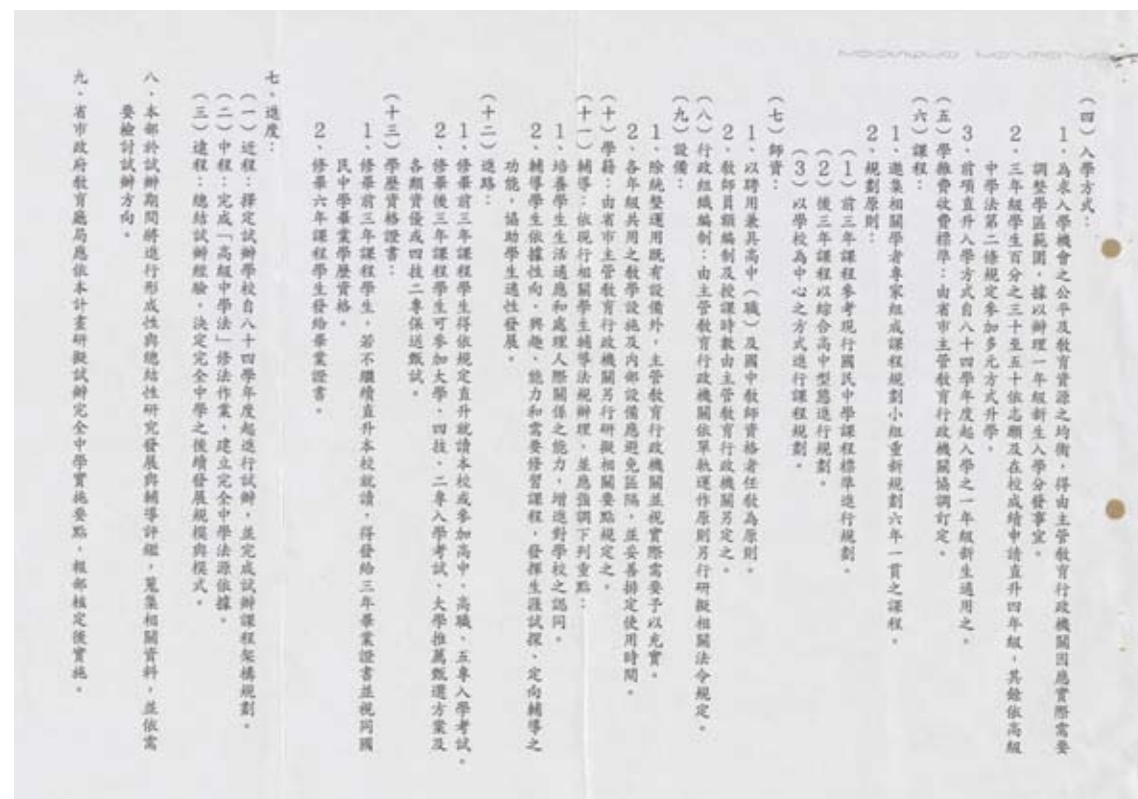 （四）入學方式：
1、為求入學機會之公平及教育資源之均衡，得由主管教育行政機關因應實際需要
調整學區範圍，據以辦理一年級新生入學分發事宜。
2、三年級學生百分之三十至五十依志願及在校成績申請直升四年級，其餘依高級
中學法第二條規定參加多元方式升學。
3、前項直升入學方式自八十四學年度起入學之一年級新生適用之。
（五）學雜費收費標準：由省市主管教育行政機關協調訂定。
（六）課程：
1、邀集相關學者專家組成課程規劃小組重新規劃六年一貫之課程。
2、規劃原則：
（1）前三年課程參考現行國民中學課程標準進行規劃。
（2）後三年課程以綜合高中型態進行規劃。
（3）以學校為中心之方式進行課程規劃。
（七）師資：
1、以聘用兼具高中（職）及國中教師資格者任教為原則。
2、教師員額編制及授課時數由主管教育行政機關另定之。
（八）行政組織編制：由主管教育行政機關依單軌運作原則另行研擬相關法令規定。
（九）設備：
1、除統整運用既有設備外，主管教育行政機關並視實際需要予以充實。
2、各年級共用之教學設施及內部設備應避免區隔，並妥善排定使用時間。
（十）學籍：由省市主管教育行政機關另行研擬相關要點規定之。
（十一）輔導：依現行相關學生輔導法規辦理，並應強調下列重點：
1、培養學生生活適應和處理人際關係之能力，增進對學校之認同。
2、輔導學生依據性向、興趣、能力和需要修習課程，發揮生涯試探、定向輔導之
功能，協助學生適性發展。
（十二）進路：
1、修畢前三年課程學生得依規定直升就讀本校或參加高中、高職、五專入學考試。
2、修畢後三年課程學生可參加大學、四技、二專入學考試、大學推薦甄選方案及
各類資優或四技二專保送甄試。
（十三）學歷資格證書：
1、修畢前三年課程學生，若不繼續直升本校就讀，得發給三年畢業證書並視同國
民中學畢業學歷資格。
2、修畢六年課程學生發給畢業證書。
七、進度：
（一）近程：擇定試辦學校自八十四學年度起進行試辦，並完成試辦課程架構規劃。
（二）中程：完成「高級中學法」修法作業，建立完全中學法源依據。
（三）遠程：總結試辦經驗，決定完全中學之後續發展規模與模式。
八、本部於試辦期間將進行形成性與總結性研究發展與輔導評鑑，蒐集相關資料，並依需
要檢討試辦方向。
九、省市政府教育廳局應依本計畫研擬試辦完全中學實施要點，報部核定後實施。